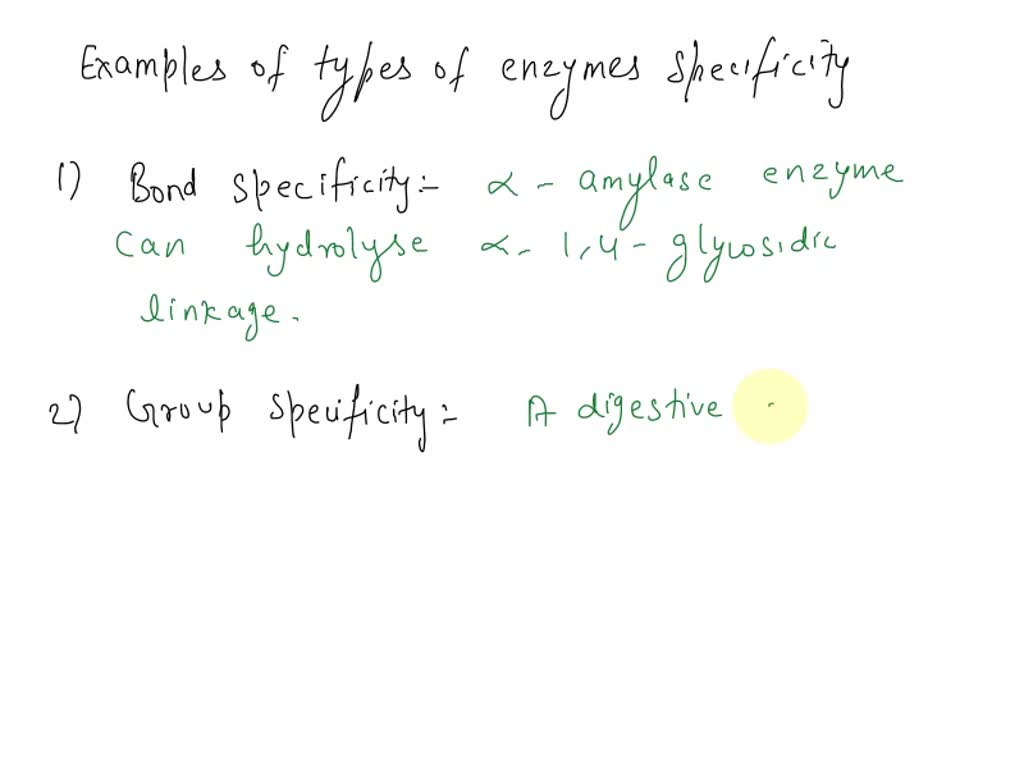 Examples of types of enzymes specificity
1) Bond specificity:- α - amylase enzyme
can hydrolyse α- 1,4 - glycosidic
linkage.
2) Group specificity:- A digestive